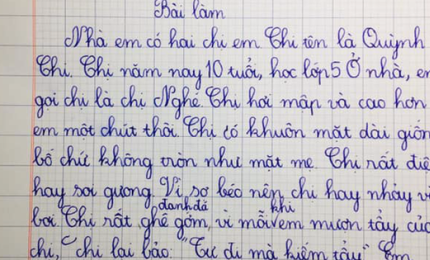 Bài làm
Nhà em có hai chị em Chị tên là Quỳnh
Chi. Chị năm nay 10 tuổi, học lớp 5 Ở nhà, em
gọi chị là chị Nghé Chị hơi mập và cao hơn
em một chút thôi. Chị có khuôn mặt dài giốn
bố chứ không tròn như mặt mẹ Chị rất điệ
hay soi gương Vì sợ béo nên chị hay nhảy v
đanh đá khi
bơi Chị rất ghê gớm, vì mỗi em mượn tẩy củ
chị, chị lại bảo: "Tự đi mà kiếm tẩy" Em